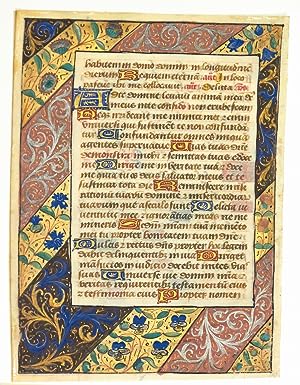 habitem in domo domini in longitudine
dierum Requiem eternam an In loco
pascue ibi me collocavit an Delicta
Ad te domine levavi animam mea d
meus in te confido non erubescam
Neque irrideant me inimici mei etenim
universi qui sustinent te non confundent
Confundantur omnes iniqua
agentes supervacue Vias tuas dne
demonstra michi et semitas tuas edoce
me Dirige me in veritate tua et
me quia tu es deus salvator meus et te
sustinui tota die Reminiscere mise
rationum tuarum domine et misericordiar
tuarum que a seculo sunt Delicta iu
ventutis mee et ignorantias meas ne me
mineris Secundum miam tuam memento
mei tu propter bonitatem tuam dne
Dulcis et rectus dns propter hoc legem
dabit delinquentibus in via Diriget
mansuetos in iudicio docebit mites vias
suas Universe vie domini mia et
veritas requirentibus testamentu eius
et testimonia eius Propter nomen